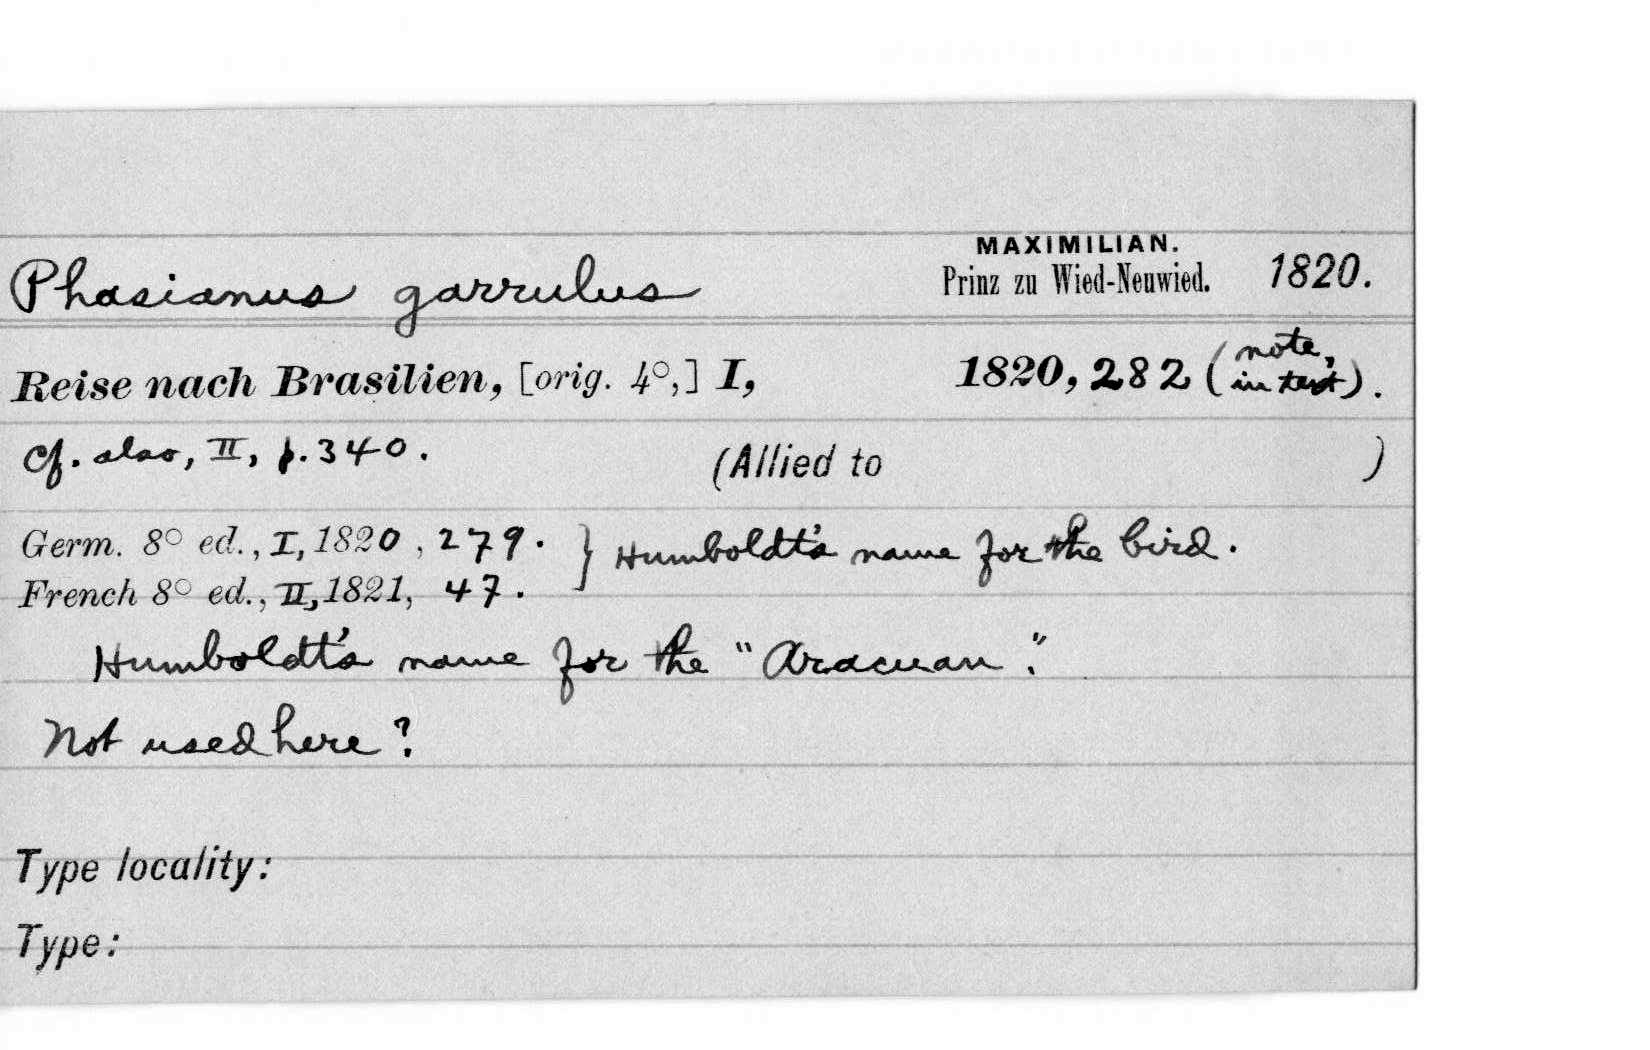 Phasianus garrulus MAXIMILIAN. Prinz zu Wied-Neuwied. 1820.
Reise nach Brasilien, [orig. 4°,] I, 1820, 282 (note, in text).
Cf. also, II, p. 340. (Allied to )
Germ. 8° ed., I, 1820, 279. } Humboldt's name for the bird.
French 8° ed., II, 1821, 47.
Humboldt's name for the "Aracuan".
Not used here?
Type locality:
Type: